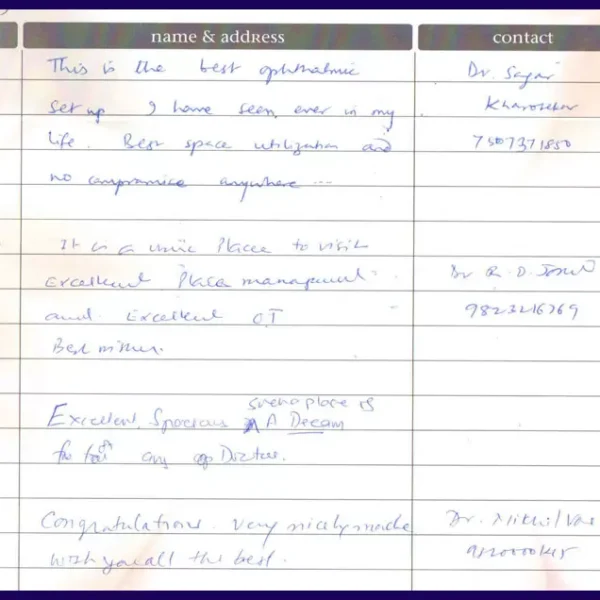 name & address
contact
This is the best ophthalmic
Dr. Sagar
set up I have seen, ever in my
life. Best space utilization and
7507371850
no compromise anywhere ...
It is a Place to visit
Excellent Place management
Dr R. D.
and Excellent OT
9823216769
Best wishes.
such place is
Excellent, Spacious A Decam
for any of Doctor.
Congratulations. Very nicely made
Dr. Nikhil
wish you all the best.